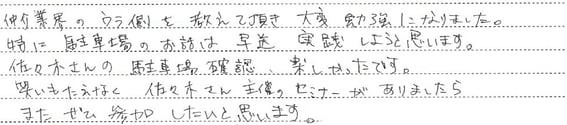 仲介業界のウラ側を教えて頂き大変勉強になりました。
特に駐車場のお話は早速実践しようと思います。
佐々木さんの駐車場確認、楽しかったです。
笑いもたえなく佐々木さん主催のセミナーがありましたら
またぜひ参加したいと思います。